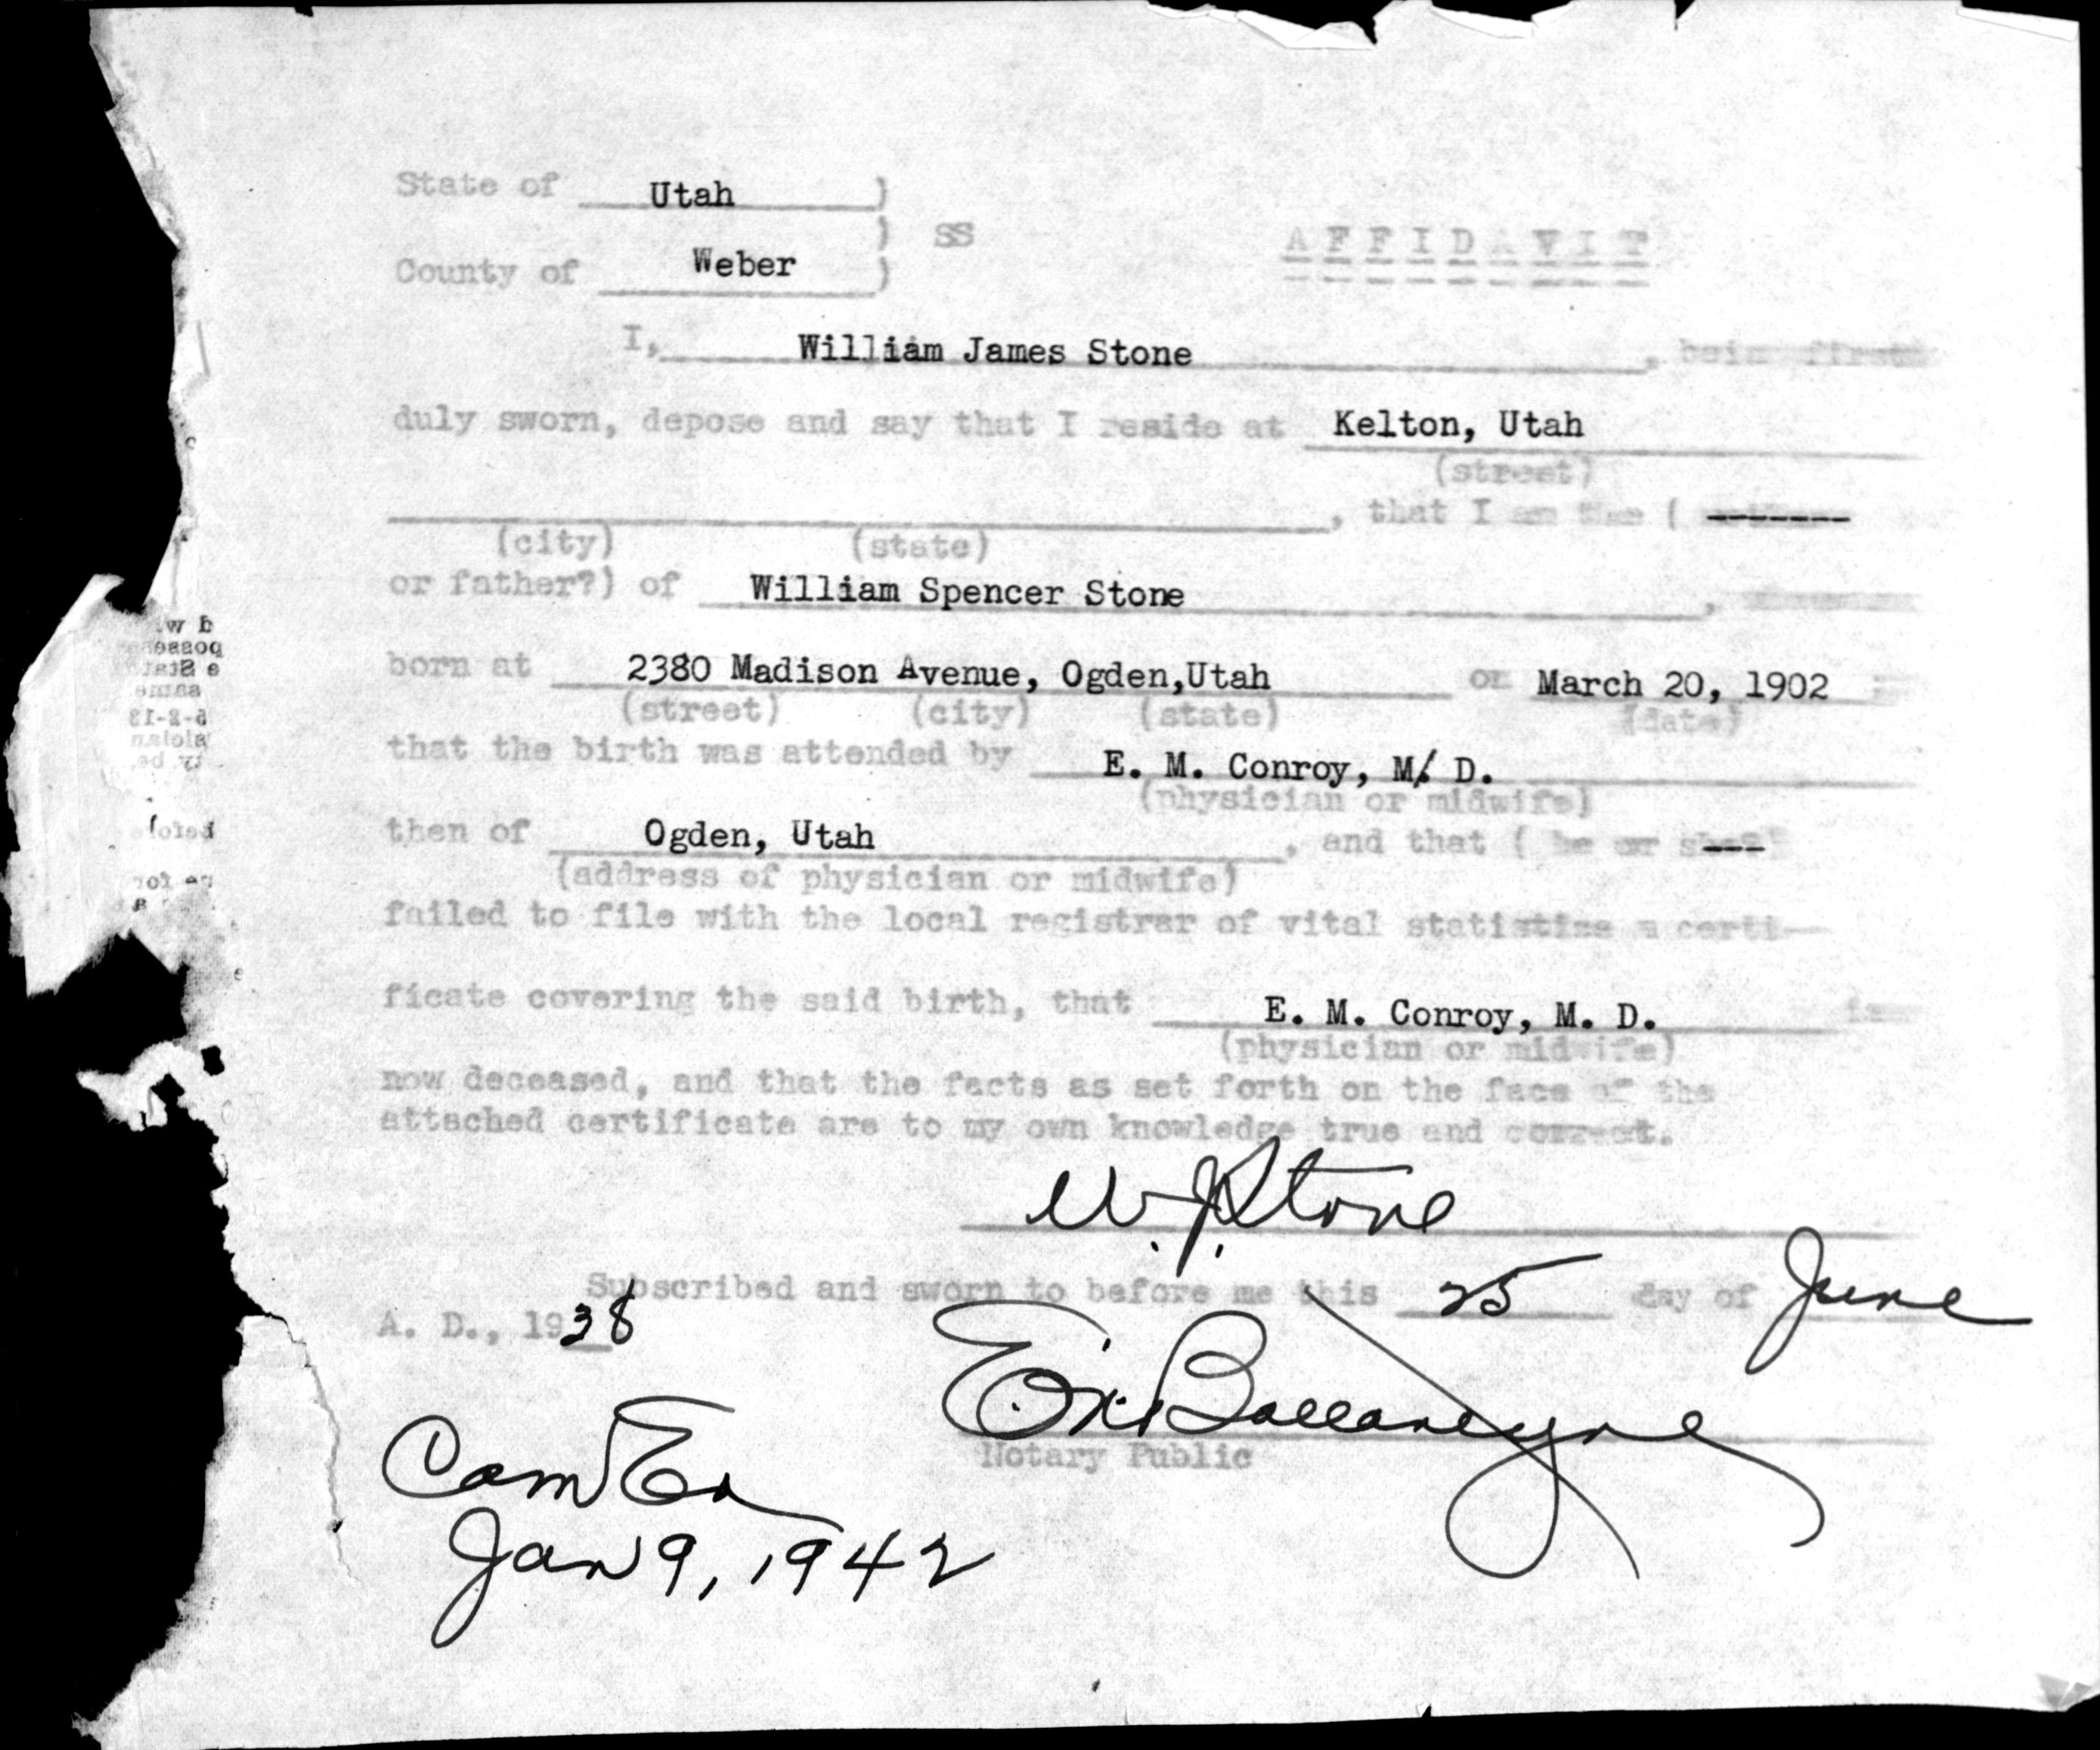 State of Utah )
) SS
AFFIDAVIT
County of Weber )
I, William James Stone, being first
duly sworn, depose and say that I reside at Kelton, Utah
(street)
, that I am the ( -------
(city) (state)
or father?) of William Spencer Stone,
born at 2380 Madison Avenue, Ogden,Utah on March 20, 1902
(street) (city) (state) (date)
that the birth was attended by E. M. Conroy, M. D.
(physician or midwife)
then of Ogden, Utah, and that ( he or ----
(address of physician or midwife)
failed to file with the local registrar of vital statistics a certi-
ficate covering the said birth, that E. M. Conroy, M. D. is
(physician or midwife)
now deceased, and that the facts as set forth on the face of the
attached certificate are to my own knowledge true and correct.
W. J. Stone
Subscribed and sworn to before me this 25 day of June
A. D., 1938
Ballantyne
Notary Public
Com Ex
Jan 9, 1942